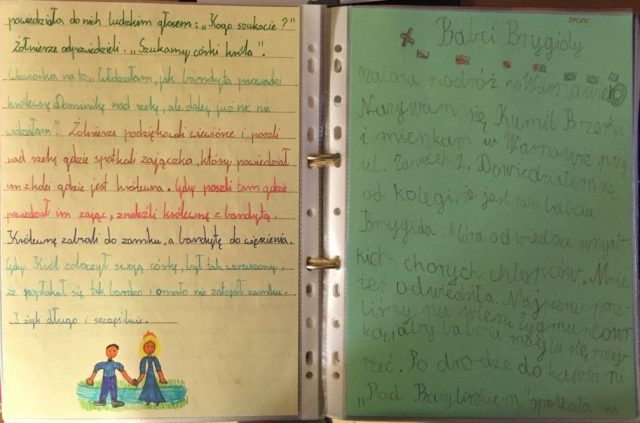 powiedziała do nich ludzkim głosem: „Kogo szukacie?”
Żołnierze odpowiedzieli: „Szukamy córki króla”.
Wiewiórka na to „Widziałam, jak bandyta prowadzi
królewnę Dominikę nad rzekę, ale dalej już nic nie
widziałam”. Żołnierze podziękowali wiewiórce i poszli
nad rzekę gdzie spotkali zajączka, który powiedział
im gdzie jest królewna. Gdy poszli tam gdzie
powiedział im zając, znaleźli królewnę z bandytą.
Królewnę zabrali do zamku, a bandytę do więzienia.
Gdy Król zobaczył swoją córkę, był tak wzruszony,
że popłakał się tak bardzo i omało nie zatopił zamku.
I żyli długo i szczęśliwie.
JACEK
Babci Brygidy
szalona podróż po Warszawie
Nazywam się Kamil
i mieszkam w Warszawie przy
ul. 2. Dowiedziałem się
od kolegi, że jest taka babcia
Brygida, która odwiedza wszyst-
kich chorych chłopców. Mnie
też odwiedziła. Najpierw
na wieżę Zygmuntowską
babcia mogła się rozej-
rzeć. Po dro-dze do
„Pod Bazyliszkiem spotkała